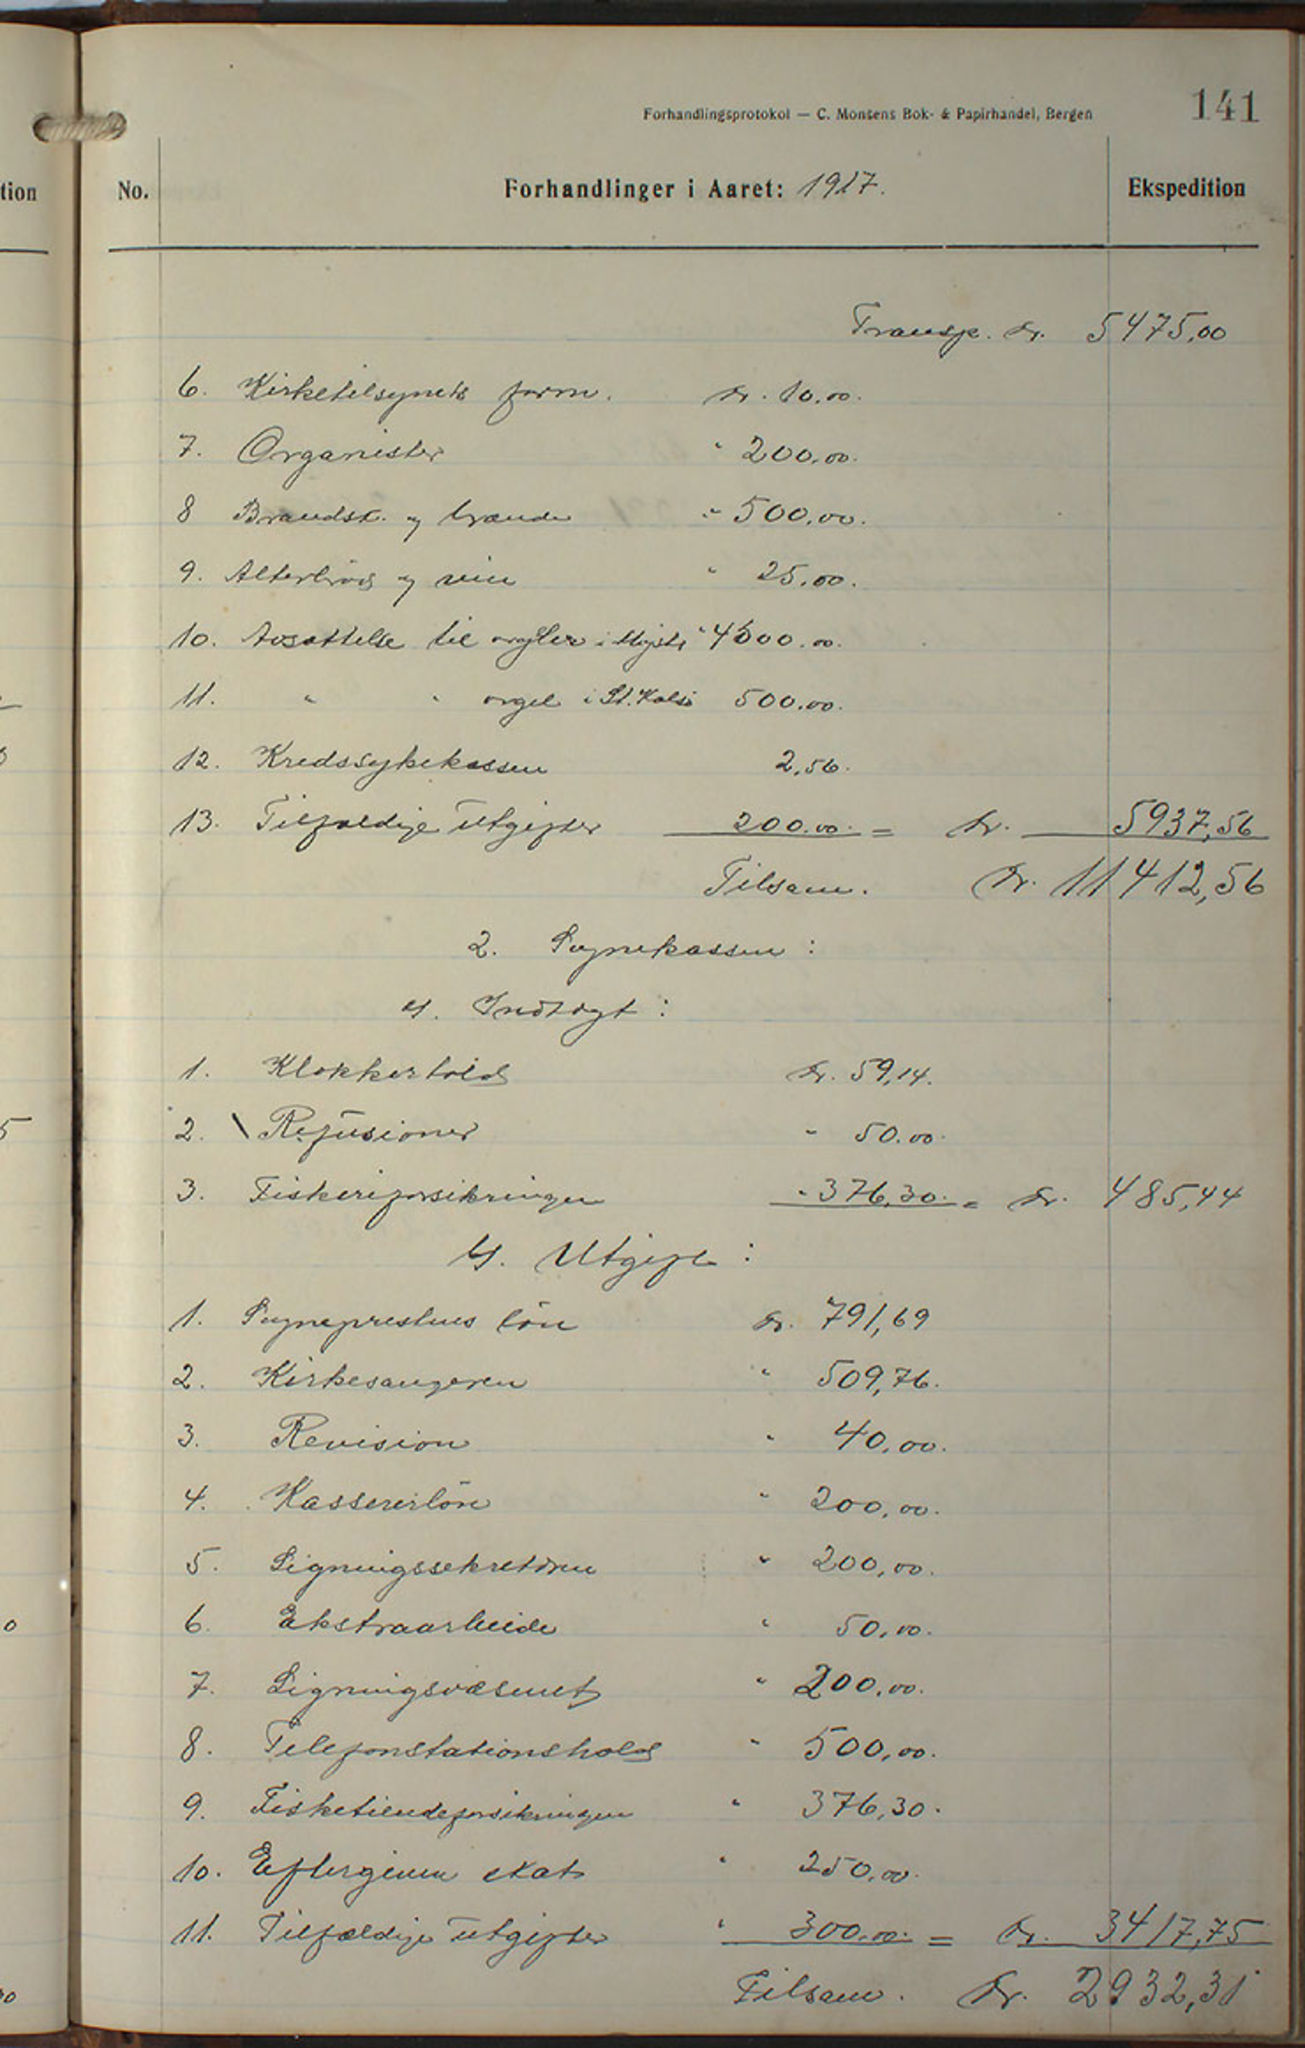 141
Forhandlingsprotokol — C. Monsens Bok- & Papirhandel, Bergen
tion No. Forhandlinger i Aaret: 1917. Ekspedition
Transp. kr. 5475,00
6. Kirketilsynets form. kr. 10.00.
7. Organister " 200,00.
8 Brandsk. og brænde " 500,00.
9. Alterbrød og vin " 25,00.
10. Avsættelse til orgler i " 4500.00.
11. " " orgel i St. 500,00.
12. Kredssykekassen 2,56.
13. Tilfældige utgifter 200.00. = kr. 5937,56
Tilsam. kr. 11412,56
2. Sognekassen :
a. Indtægt :
1. Klokkertold kr. 59,14.
2. \ Refusioner " 50.00.
3. Fiskeriforsikringen " 376,30. = kr. 485,44
b. Utgift :
1. Sogneprestens løn kr. 791,69
2. Kirkesangeren " 509,76.
3. Revision " 40,00.
4. Kassererløn " 200,00.
5. Ligningssekretæren " 200,00.
6. Ekstraarbeide " 50,00.
7. Ligningsvæsenet " 200,00.
8. Telefonstationshold " 500,00.
9. Fisketiendeforsikringen " 376,30.
10. Eftergiven skat " 250,00.
11. Tilfældige utgifter " 300.00. = kr. 3417,75
Tilsam. kr. 2932,31